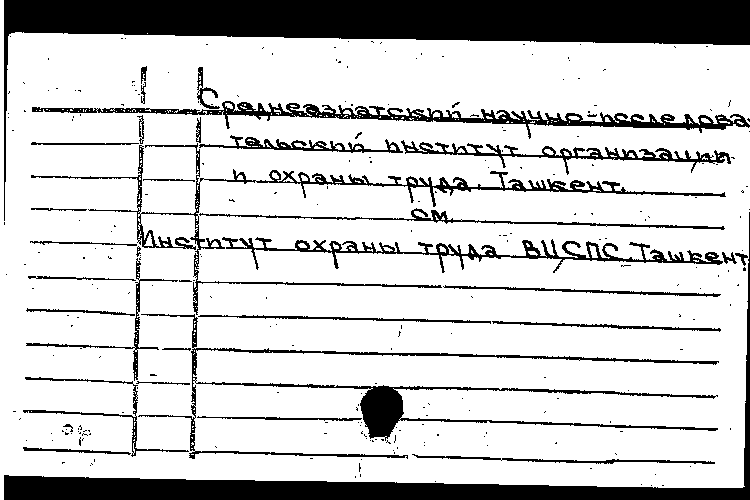 Среднеазиатский научно-исследова-
тельский институт организации
и охраны труда. Ташкент.
см.
Институт охраны труда ВЦСПС. Ташкент